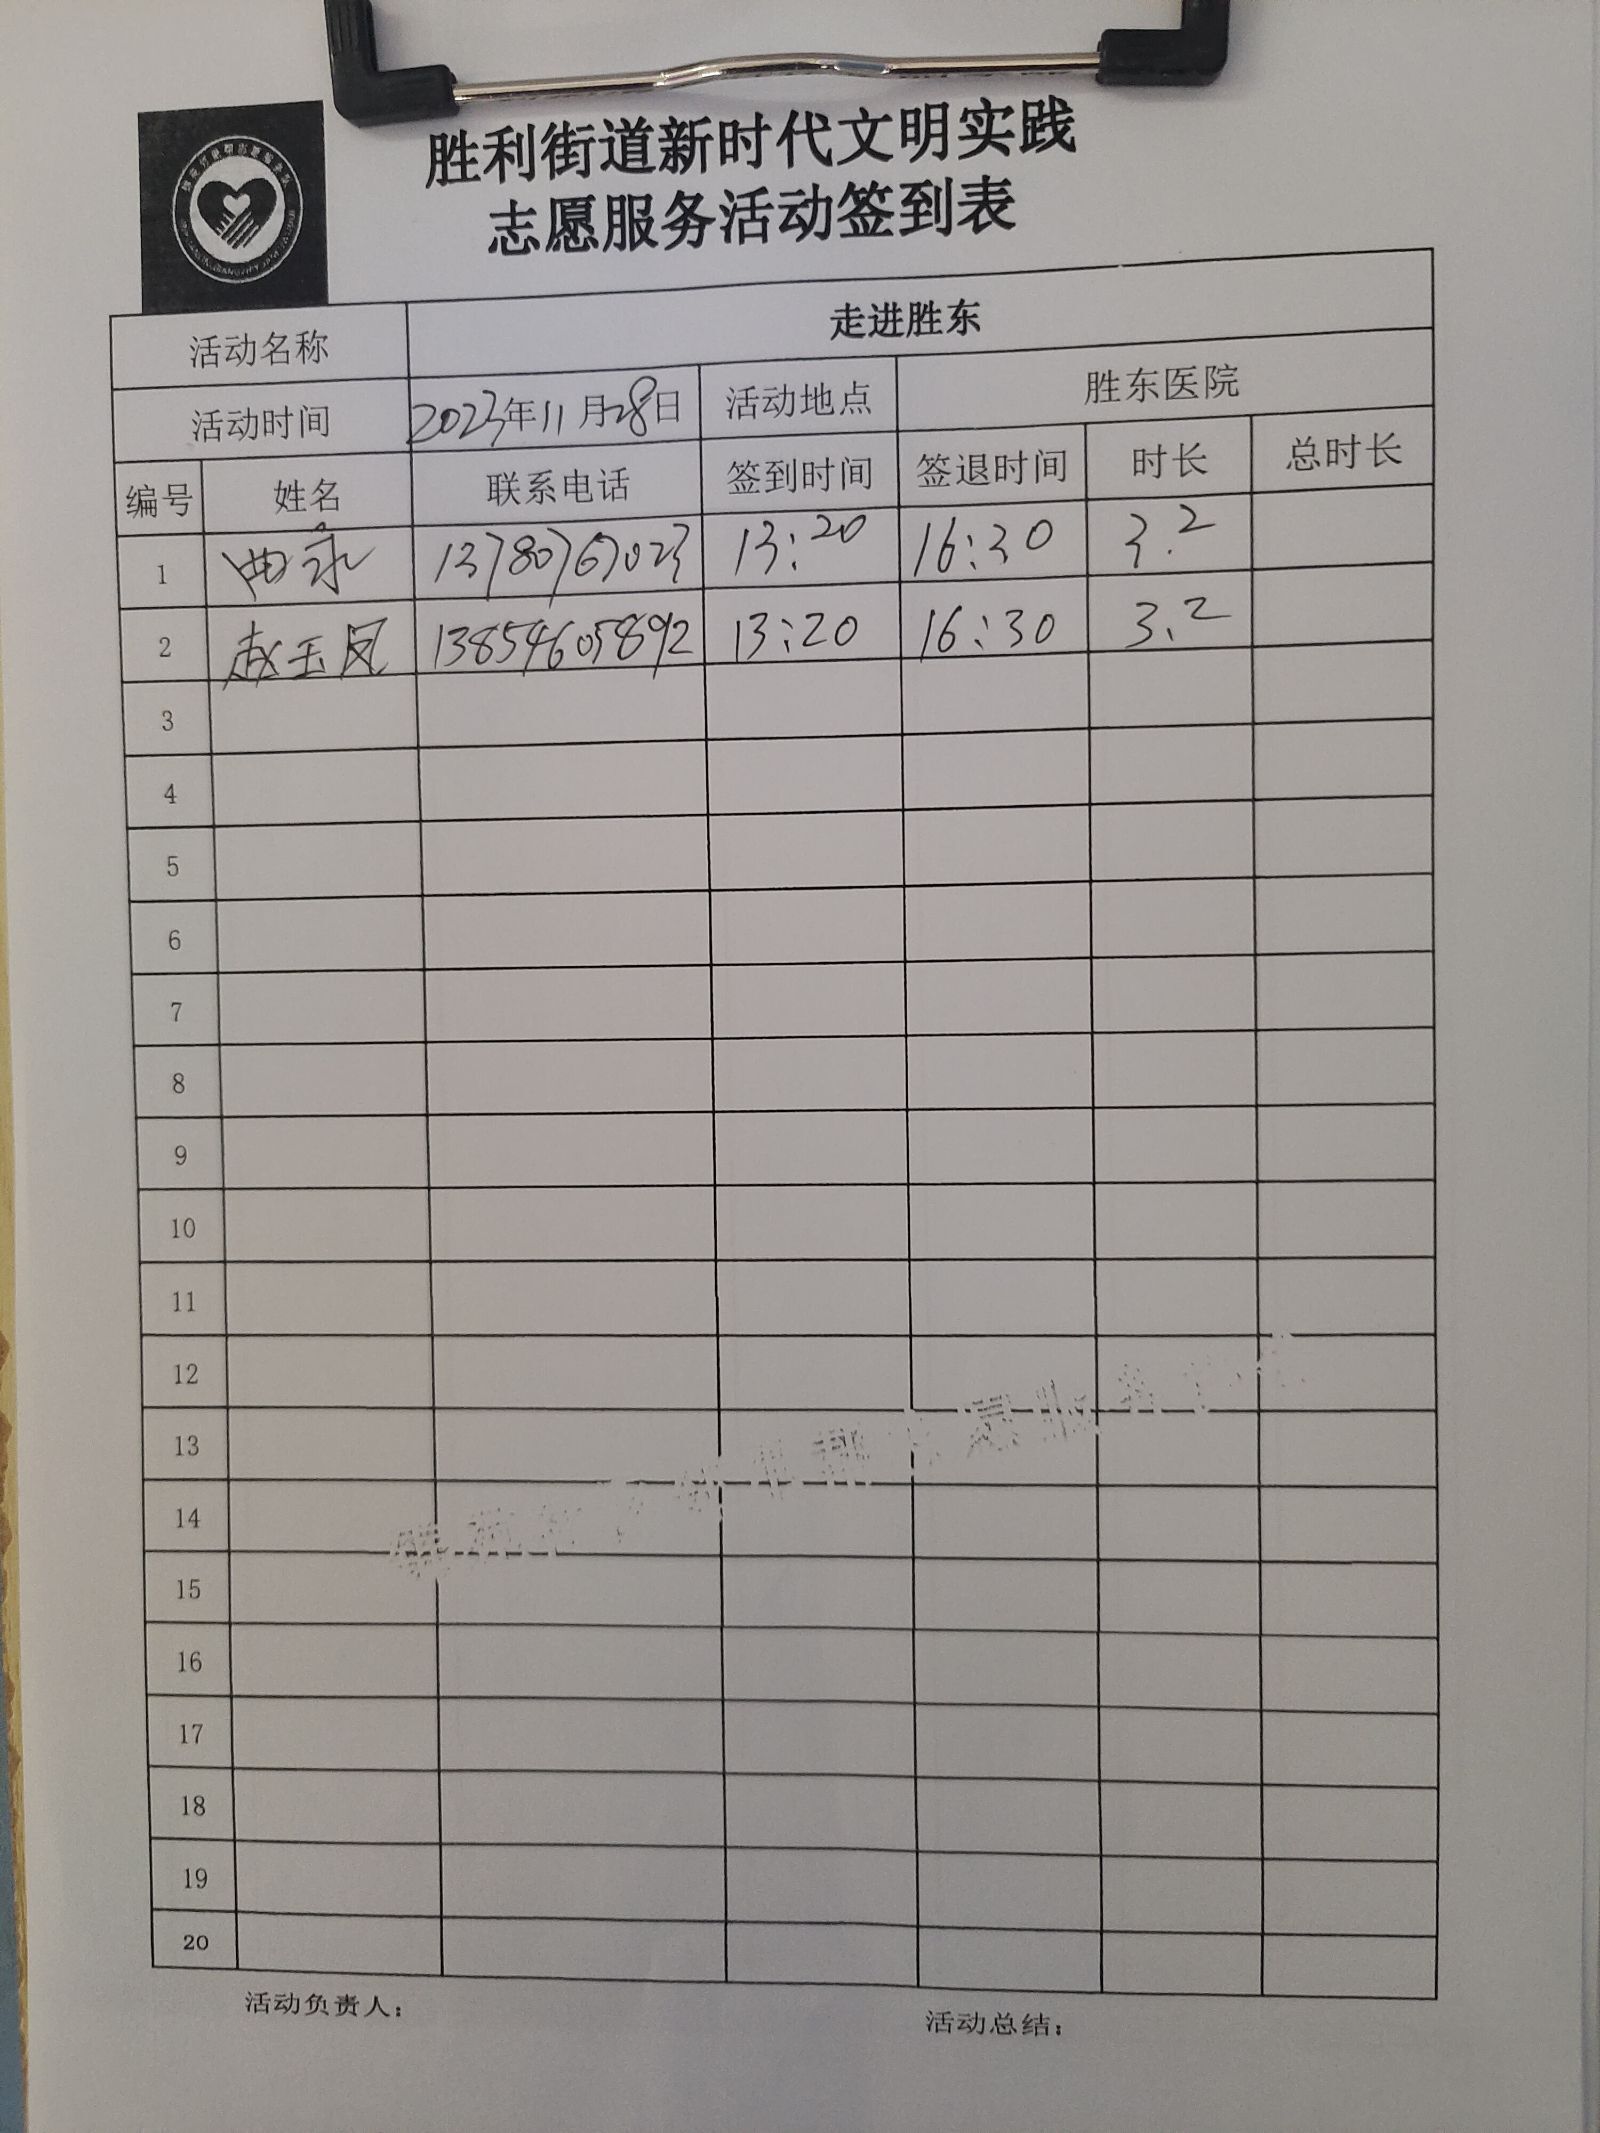 胜利街道新时代文明实践
志愿服务活动签到表
活动名称 走进胜东
活动时间 2023年11月28日 活动地点 胜东医院
编号 姓名 联系电话 签到时间 签退时间 时长 总时长
1 曲永 13780767023 13:20 16:30 3.2
2 赵玉凤 13854605892 13:20 16:30 3.2
3
4
5
6
7
8
9
10
11
12
13
14
15
16
17
18
19
20
活动负责人： 活动总结：